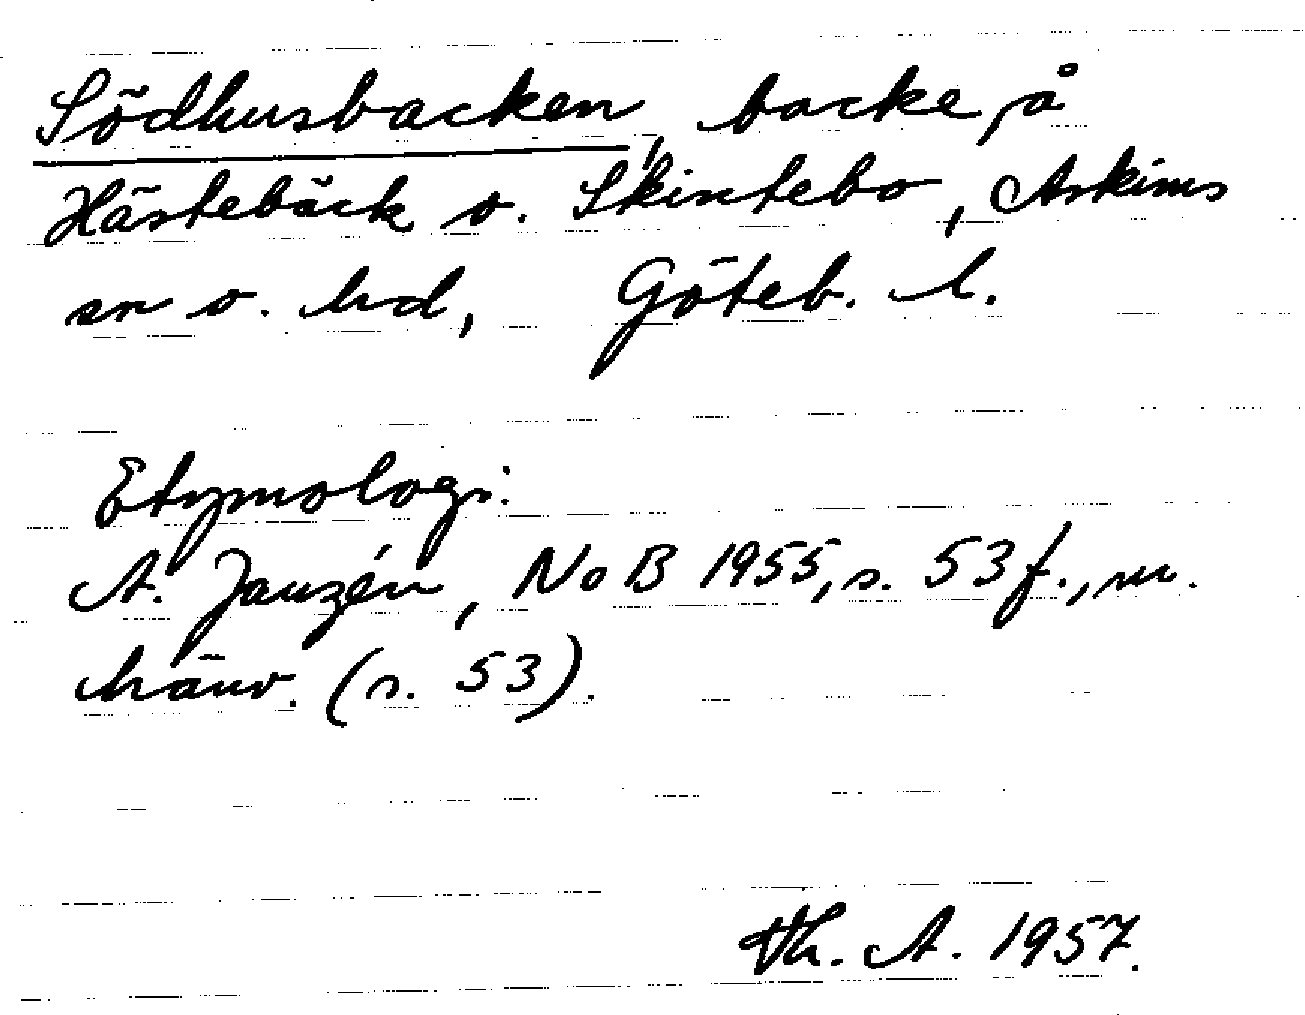 Södhusbacken, backe på
Hästebäck o. Skintebo, Askims
sn o. hd, Göteb. l.
Etymologi:
A. Janzén, NoB 1955, s. 53 f., m.
hänv. (s. 53).
Th. A. 1957.